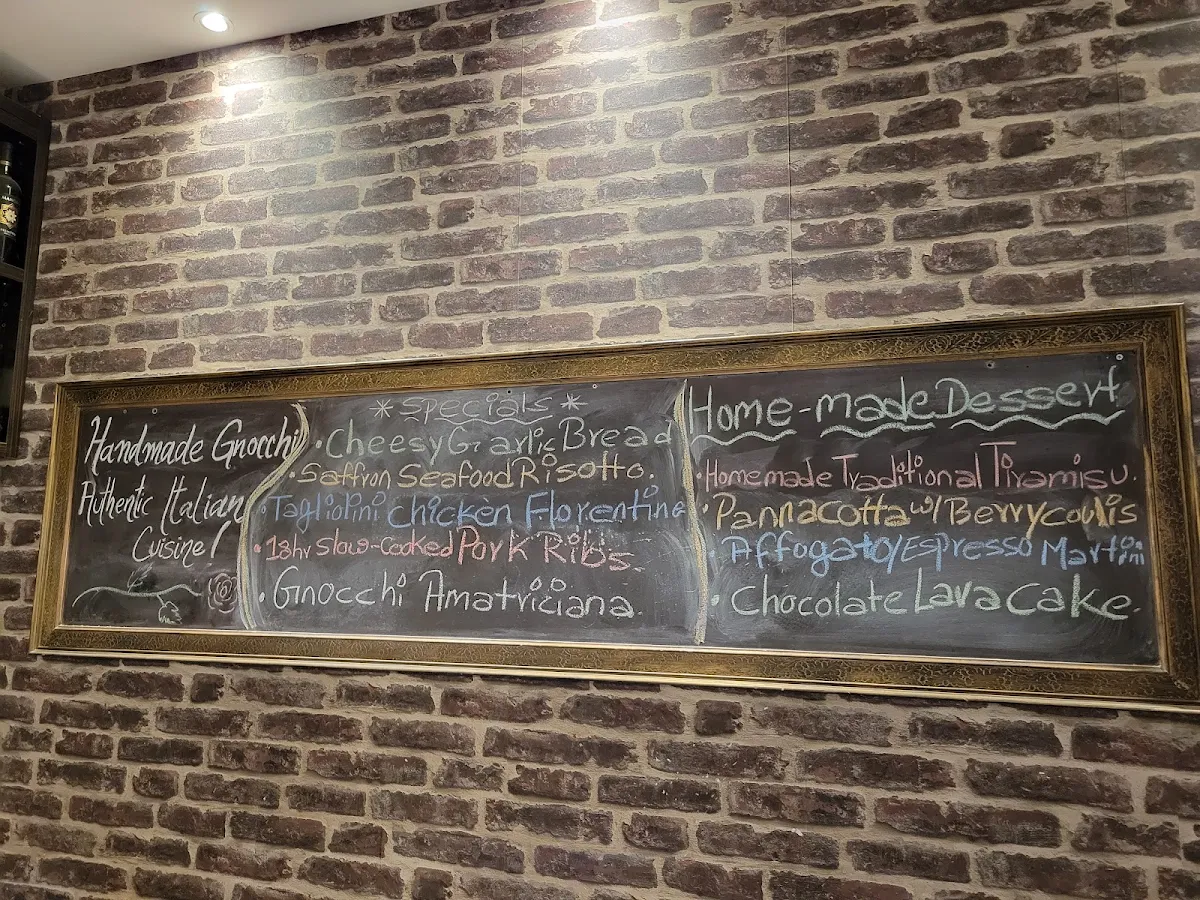 Handmade Gnocchi
Authentic Italian
Cuisine!
* Specials *
• Cheesy Garlic Bread
• Saffron Seafood Risotto.
• Tagliolini chicken Florentine
• 18hr Slow-Cooked Pork Ribs.
• Gnocchi Amatriciana.
Home-made Dessert
• Homemade Traditional Tiramisu.
• Pannacotta w/ Berry coulis
• Affogato/Espresso Martini
• Chocolate Lava Cake.